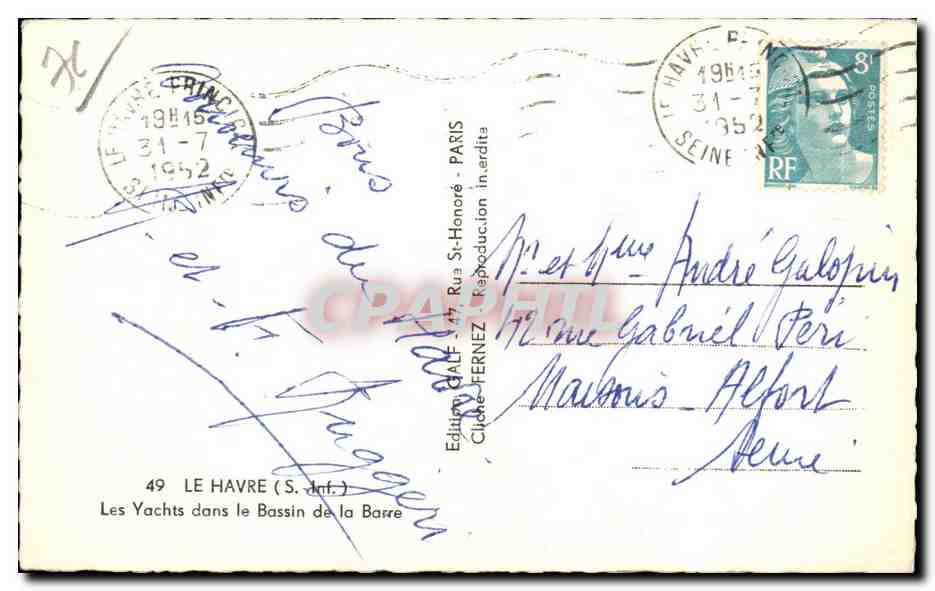 76
LE HAVRE PRINCIPAL
19H15
31-7
1952
SEINE INFRE
LE HAVRE PRINC
19H15
31-7
1952
SEINE INFRE
8F
POSTES
RF
Bons
Souvenirs
du Havre
et
Edition GALF - 47, Rue St-Honoré - PARIS
Cliché FERNEZ - Reproduction interdite
CPAPHIL
Mr et Mme André Galopin
12 rue Gabriel Péri
Maisons-Alfort
Seine
49 LE HAVRE (S.-Inf.)
Les Yachts dans le Bassin de la Barre